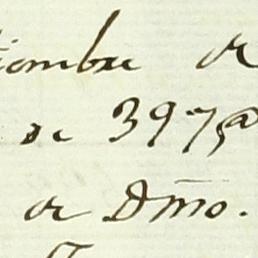 tiembre de
de 3975@
de Dmo.